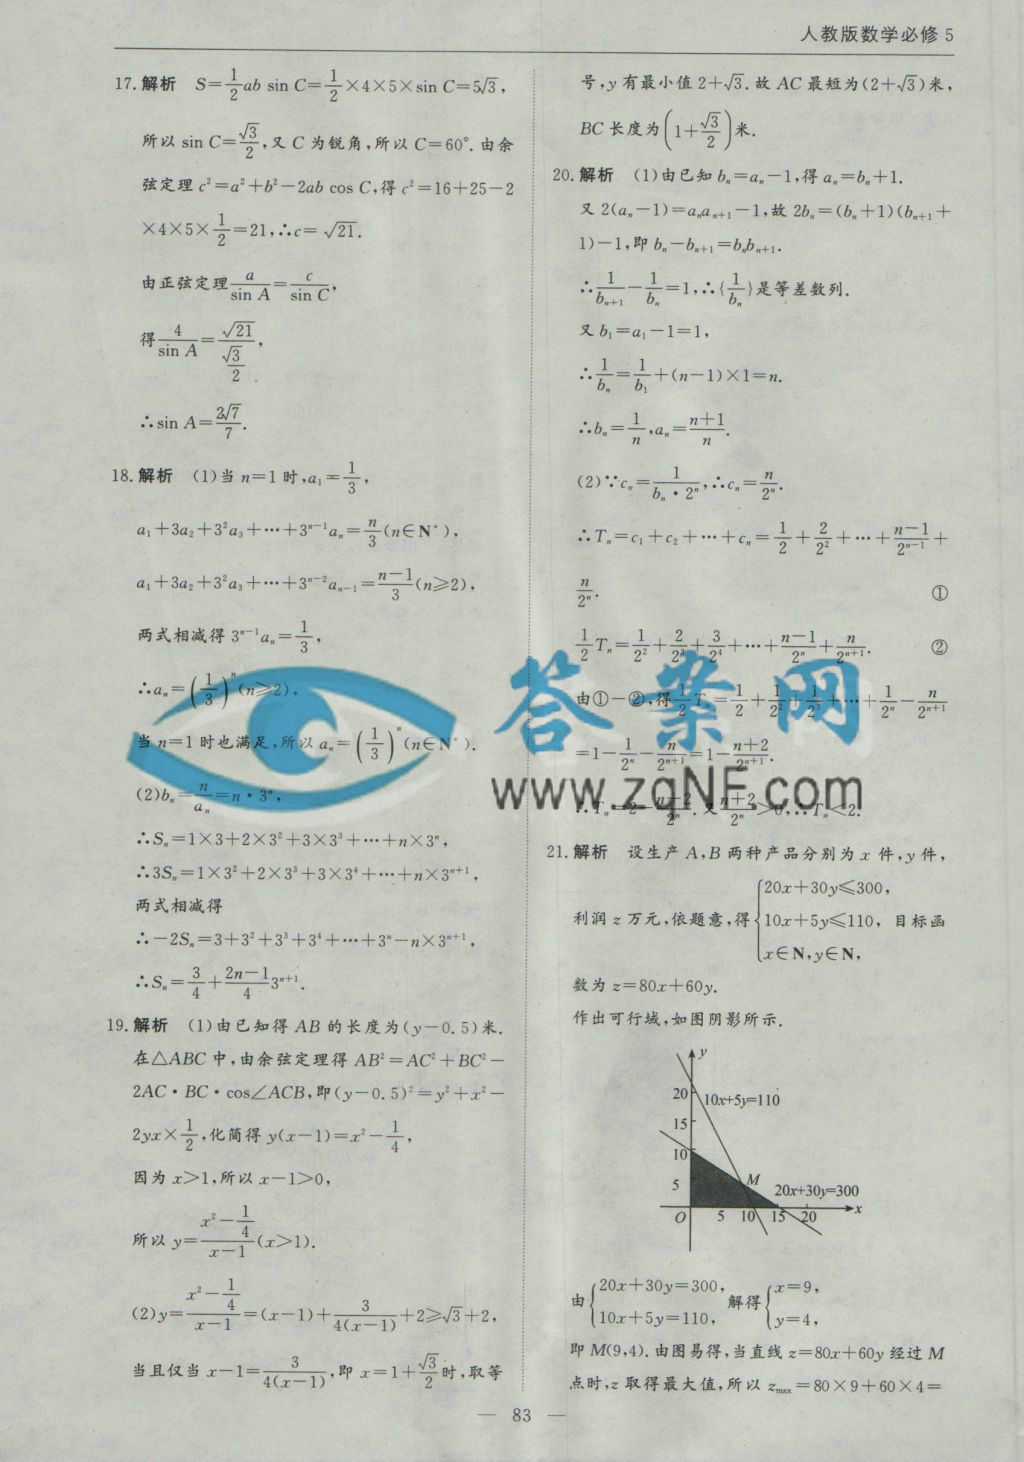 人教版数学必修 5
17. 解析 S=\frac{1}{2}ab sin C=\frac{1}{2}×4×5×sin C=5√3,
所以 sin C=\frac{√3}{2},又 C 为锐角,所以 C=60°. 由余
弦定理 c²=a²+b²−2ab cos C,得 c²=16+25−2
×4×5×\frac{1}{2}=21,∴c=√21.
由正弦定理\frac{a}{sin A}=\frac{c}{sin C},
得\frac{4}{sin A}=\frac{√21}{\frac{√3}{2}},
∴sin A=\frac{2√7}{7}.
18. 解析 (1)当 n=1 时,a₁=\frac{1}{3},
a₁+3a₂+3²a₃+⋯+3ⁿ⁻¹aₙ=\frac{n}{3}(n∈N*),
a₁+3a₂+3²a₃+⋯+3ⁿ⁻²aₙ₋₁=\frac{n−1}{3}(n≥2),
两式相减得 3ⁿ⁻¹aₙ=\frac{1}{3},
∴aₙ=(\frac{1}{3})ⁿ(n≥2),
当 n=1 时也满足,所以 aₙ=(\frac{1}{3})ⁿ(n∈N*).
(2)bₙ=\frac{n}{aₙ}=n·3ⁿ,
∴Sₙ=1×3+2×3²+3×3³+⋯+n×3ⁿ,
∴3Sₙ=1×3²+2×3³+3×3⁴+⋯+n×3ⁿ⁺¹,
两式相减得
∴−2Sₙ=3+3²+3³+3⁴+⋯+3ⁿ−n×3ⁿ⁺¹,
∴Sₙ=\frac{3}{4}+\frac{2n−1}{4}3ⁿ⁺¹.
19. 解析 (1)由已知得 AB 的长度为(y−0.5)米.
在△ABC 中,由余弦定理得 AB²=AC²+BC²−
2AC·BC·cos∠ACB,即(y−0.5)²=y²+x²−
2yx×\frac{1}{2},化简得 y(x−1)=x²−\frac{1}{4},
因为 x>1,所以 x−1>0,
所以 y=\frac{x²−\frac{1}{4}}{x−1}(x>1).
(2)y=\frac{x²−\frac{1}{4}}{x−1}=(x−1)+\frac{3}{4(x−1)}+2≥√3+2,
当且仅当 x−1=\frac{3}{4(x−1)},即 x=1+\frac{√3}{2}时,取等
号,y 有最小值 2+√3. 故 AC 最短为(2+√3)米,
BC 长度为(1+\frac{√3}{2})米.
20. 解析 (1)由已知 bₙ=aₙ−1,得 aₙ=bₙ+1.
又 2(aₙ−1)=aₙaₙ₊₁−1,故 2bₙ=(bₙ+1)(bₙ₊₁+
1)−1,即 bₙ−bₙ₊₁=bₙbₙ₊₁.
∴\frac{1}{bₙ₊₁}−\frac{1}{bₙ}=1,∴{\frac{1}{bₙ}}是等差数列.
又 b₁=a₁−1=1,
∴\frac{1}{bₙ}=\frac{1}{b₁}+(n−1)×1=n.
∴bₙ=\frac{1}{n},aₙ=\frac{n+1}{n}.
(2)∵cₙ=\frac{1}{bₙ·2ⁿ},∴cₙ=\frac{n}{2ⁿ}.
∴Tₙ=c₁+c₂+⋯+cₙ=\frac{1}{2}+\frac{2}{2²}+⋯+\frac{n−1}{2ⁿ⁻¹}+
\frac{n}{2ⁿ}. ①
\frac{1}{2}Tₙ=\frac{1}{2²}+\frac{2}{2³}+\frac{3}{2⁴}+⋯+\frac{n−1}{2ⁿ}+\frac{n}{2ⁿ⁺¹}. ②
由①−②,得\frac{1}{2}Tₙ=\frac{1}{2}+\frac{1}{2²}+\frac{1}{2³}+⋯+\frac{1}{2ⁿ}−\frac{n}{2ⁿ⁺¹}
=1−\frac{1}{2ⁿ}−\frac{n}{2ⁿ⁺¹}=1−\frac{n+2}{2ⁿ⁺¹}.
∴Tₙ=2−\frac{n+2}{2ⁿ}. 又\frac{n+2}{2ⁿ}>0,∴Tₙ<2.
答案网
www.zqNF.com
21. 解析 设生产 A,B 两种产品分别为 x 件,y 件,
利润 z 万元,依题意,得{20x+30y≤300, 10x+5y≤110, x∈N,y∈N, 目标函
数为 z=80x+60y.
作出可行域,如图阴影所示.
y
20
10x+5y=110
15
10
5
M
20x+30y=300
O 5 10 15 20 x
由{20x+30y=300, 10x+5y=110, 解得{x=9, y=4,
即 M(9,4). 由图易得,当直线 z=80x+60y 经过 M
点时,z 取得最大值,所以 zmax=80×9+60×4=
— 83 —